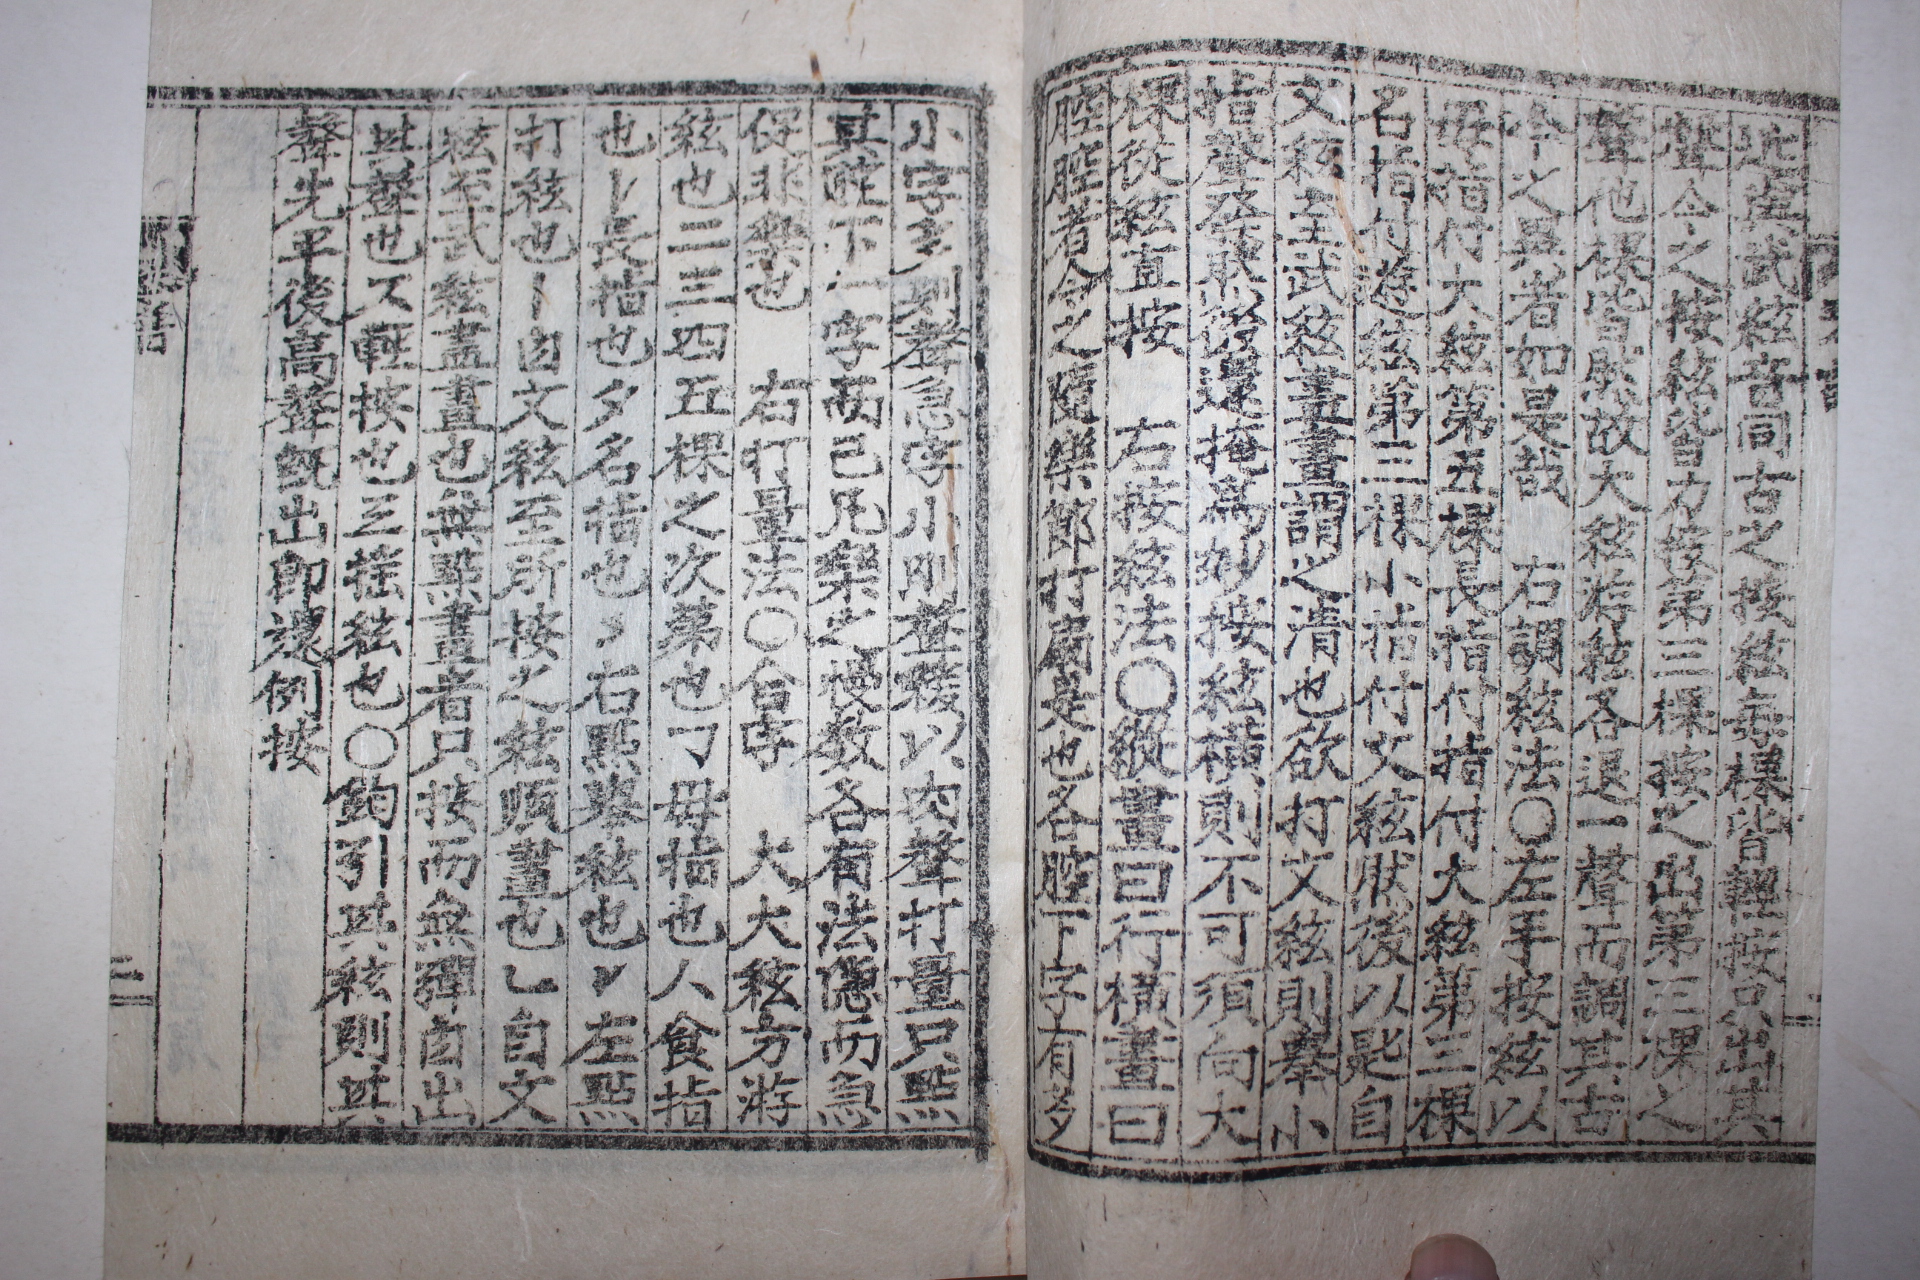 淸與武絃音同古之按絃每棵皆輕按只出其
聲今之按絃皆力按第三棵按之出第三棵之
聲他棵皆然故大絃游絃各退一聲而調其古
今之異者如是哉　右調絃法〇左手按絃以
毋指付大絃第五棵長指付指付大絃第三棵
名指付遊絃第三棵小指付文絃然後以匙自
文絃至武絃畫畫謂之淸也欲打文絃則擧小
指聲發然後還掩爲妙按絃橫則不可須向大
棵從絃直按　右按絃法〇縱畫曰行橫畫曰
腔腔者今之隨樂節打扇是也各腔下字有多
小字多則聲急字小則聲緩以內聲打量只點
其腔下一字而已凡樂之慢數各有法隱而急
得非樂也　右打量法〇合字　大大絃方游
絃也二三四五棵之次第也㇆母指也人食指
也㇑長指也夕名指也丶右點擧絃也㇑左點
打絃也丨自文絃至所按之絃順畫也乚自文
絃至武絃盡畫也無點畫者只按而無彈自出
其聲也又輕按也三搖絃也〇鉤引其絃則其
聲先平後高聲旣出卽還例按